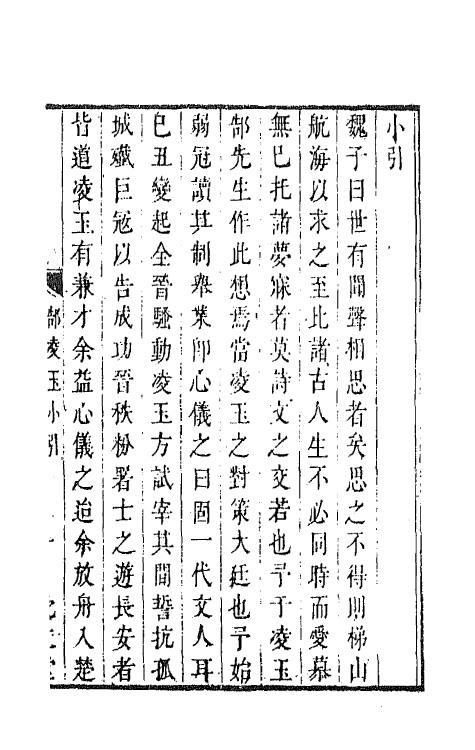 小引
魏子曰世有聞聲相思者矣思之不得則梯山
航海以求之至比諸古人生不必同時而愛慕
無已托諸夢寐者莫詩文之交若也予于凌玉
郜先生作此想焉當凌玉之對策大廷也予始
弱冠讀其制舉業卽心儀之曰固一代文人耳
已丑變起全晉騷動凌玉方試宰其間誓抗孤
城殲巨寇以告成功晉秩枌署士之遊長安者
皆道凌玉有兼才余益心儀之迨余放舟入楚
郜凌玉小引